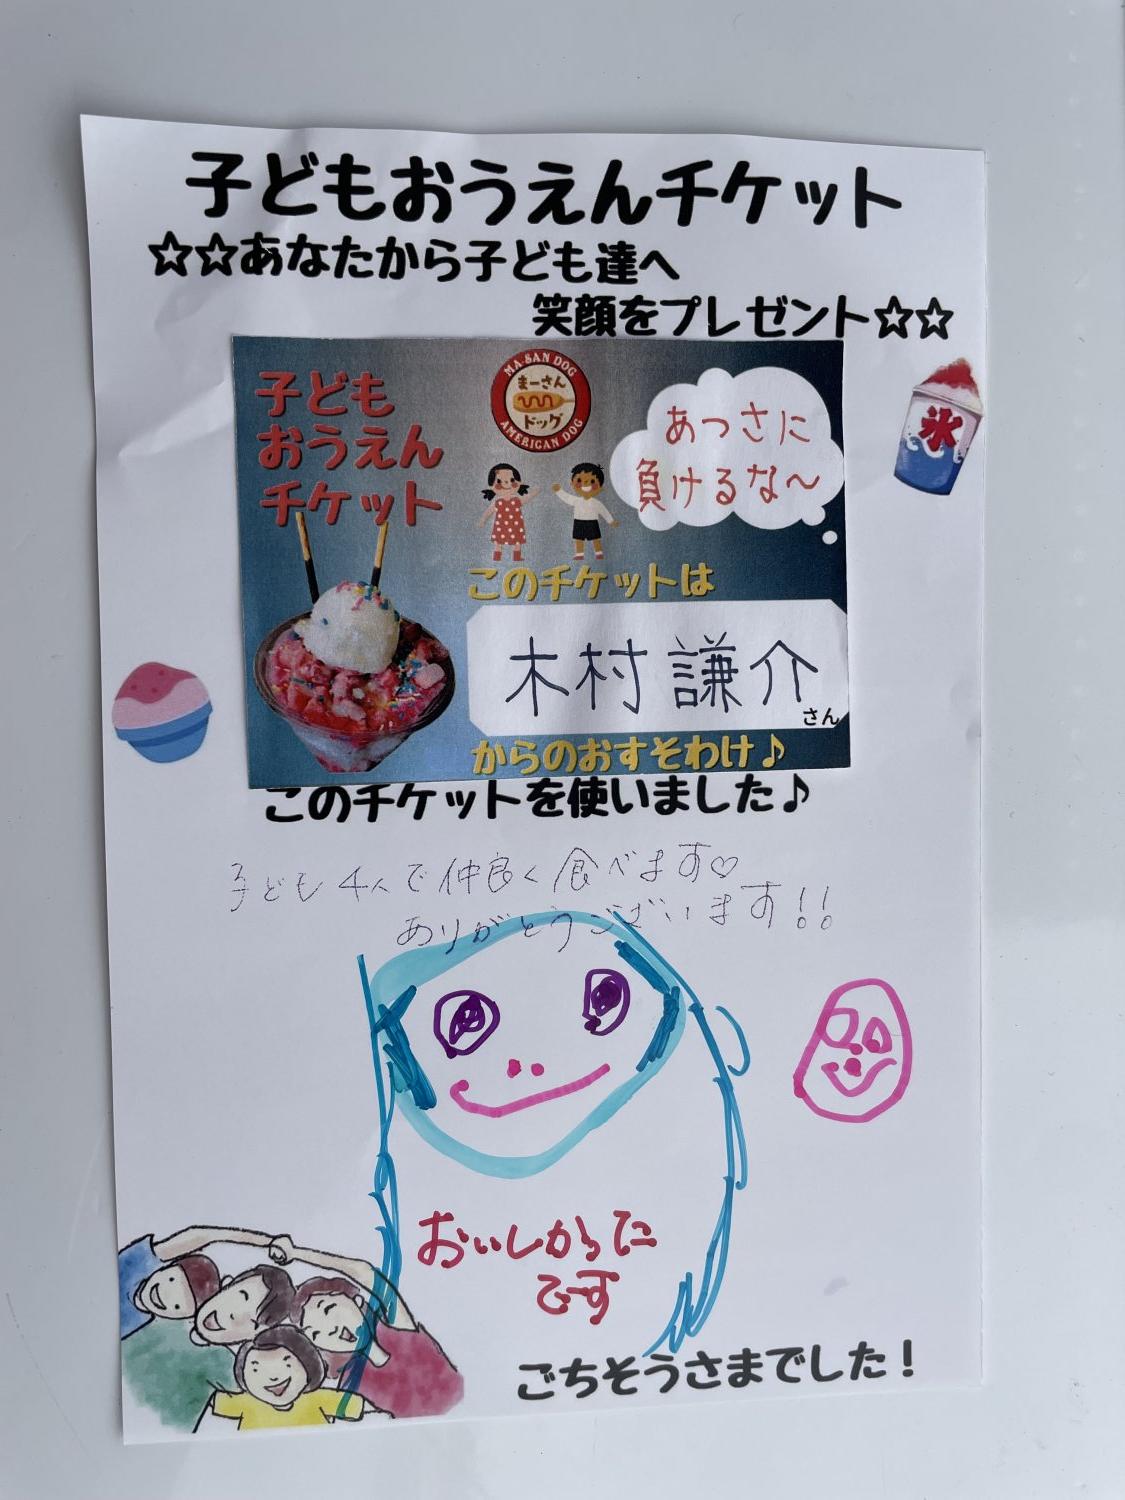 子どもおうえんチケット
☆☆あなたから子ども達へ
笑顔をプレゼント☆☆
子ども
おうえん
チケット
MA-SAN DOG
まーさん
ドッグ
AMERICAN DOG
あつさに
負けるな〜
氷
このチケットは
木村謙介
さん
からのおすそわけ♪
このチケットを使いました♪
子ども4人で仲良く食べます♡
ありがとうございます!!
おいしかった
です
ごちそうさまでした!